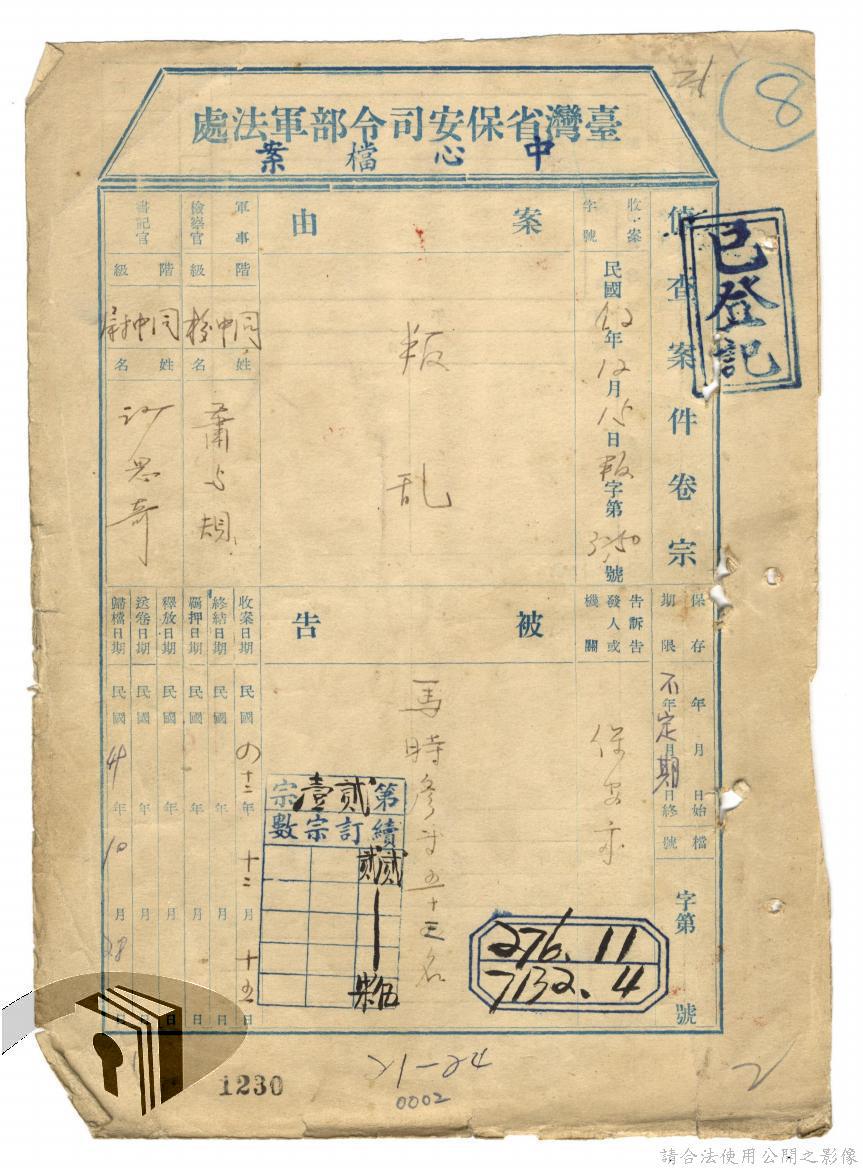 8
臺灣省保安司令部軍法處
中心檔案
已登記
偵查案件卷宗
收案字號
民國42年12月15日叛字第3150號
案由
叛乱
軍事檢察官
階級
同中校
姓名
蕭与規
書記官
階級
同中尉
姓名
沙思奇
保存期限
年月日始
年月日終
不定期
檔號
字第
號
告訴告發人或機關
保安處
被告
馬時彥等五十三名
收案日期
民國四十二年十二月十五日
終結日期
民國年月日
羈押日期
民國年月日
釋放日期
民國年月日
送卷日期
民國年月日
歸檔日期
民國44年10月28日
第貳壹宗
續訂宗數
貳貳
276.11
7132.4
21-24
1230
0002
2
請合法使用公開之影像